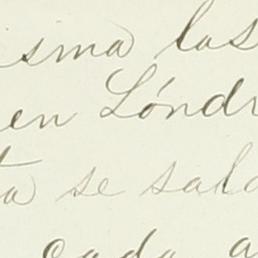 isma las
en Lóndr
ta se sald
cada a